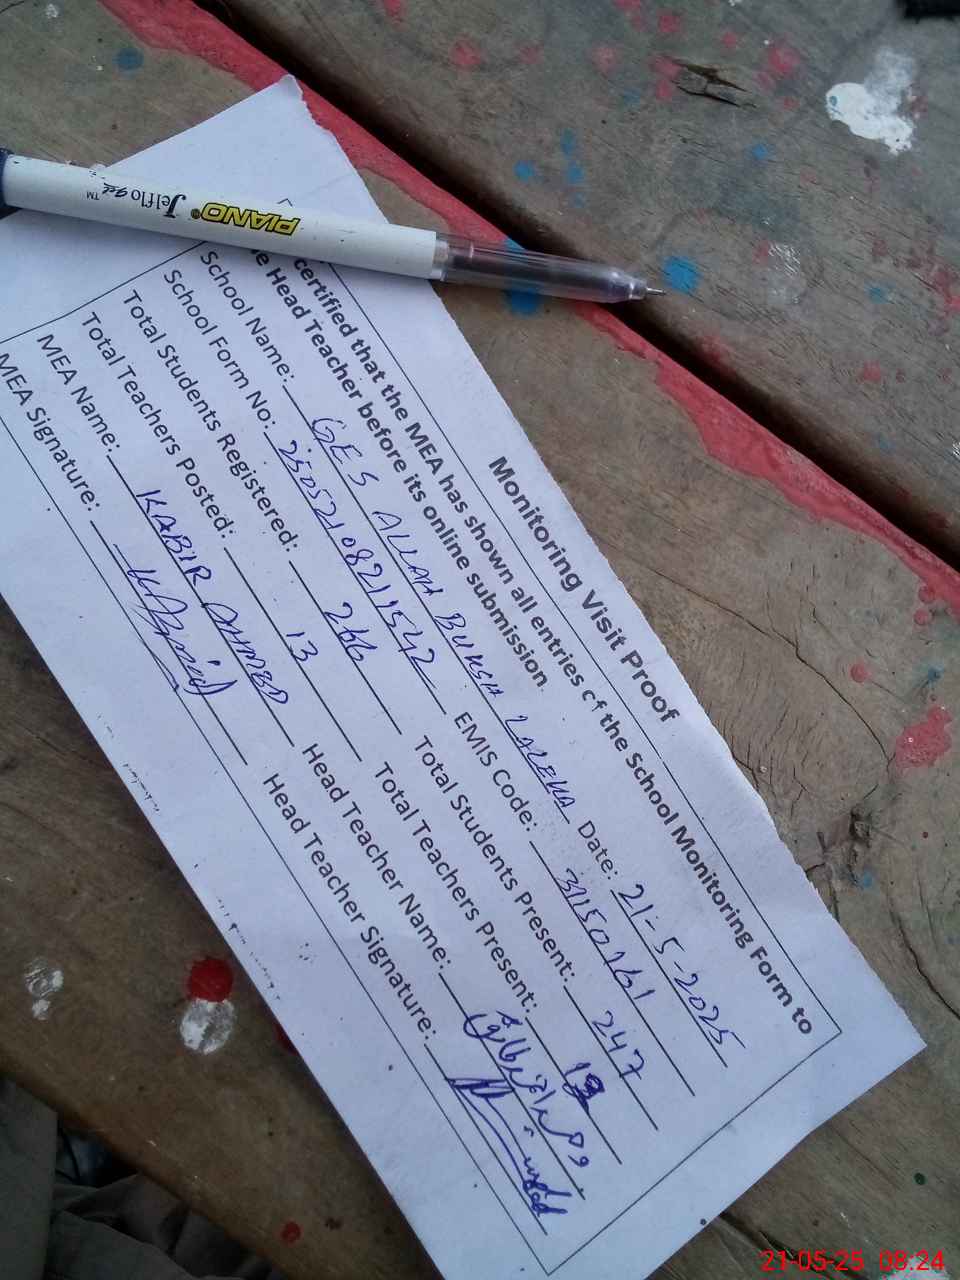 Monitoring Visit Proof
certified that the MEA has shown all entries of the School Monitoring Form to
e Head Teacher before its online submission.
School Name: GES ALLAH BUKSH LALEKA Date: 21-5-2025
School Form No: 250521082111542 EMIS Code: 31150161
Total Students Registered: 266 Total Students Present: 247
Total Teachers Posted: 13 Total Teachers Present:
MEA Name: KABIR AHMED Head Teacher Name:
MEA Signature: K Ahmed Head Teacher Signature:
PIANO® Jelflo gel ™
21-05-25 08:24